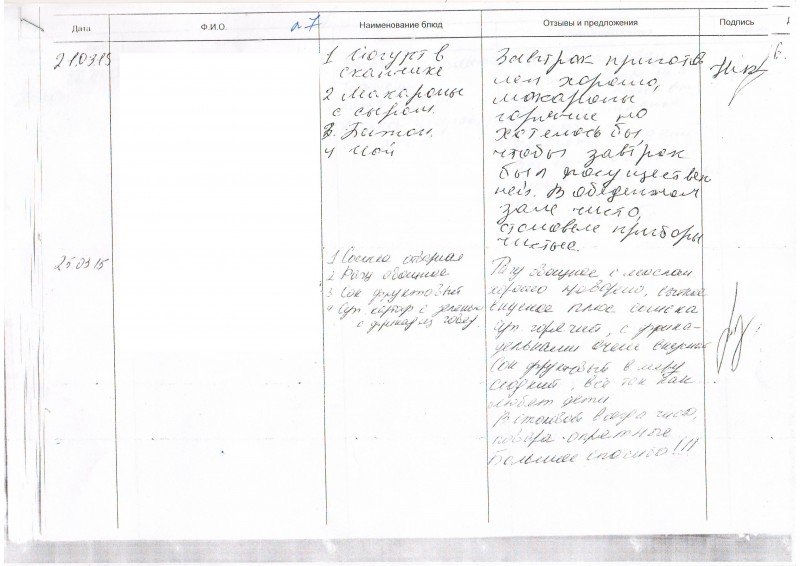 Дата Ф.И.О. Наименование блюд Отзывы и предложения Подпись
21.03.15
1 Йогурт в
стаканчике
2 Макароны
с сыром.
3. Батон.
4 Чай
Завтрак приготов
лен хорошо,
макароны
горячие но
хотелось бы,
чтобы завтрак
был посуществен
ней. В обеденном
зале чисто,
столовые приборы
чистые.
25 03 15
1 Сосиска отварная
2 Рагу овощное
3 Сок фруктовый
4 Суп картоф с
с фрикад из говяд.
Рагу овощное с
хорошо
вкусное
суп горячий, с фрика-
дельками очень вкусный
Сок фруктовый в меру
сладкий, всё так как
любят дети
В столовой всегда чисто,
повара опрятные
Большое спасибо!!!